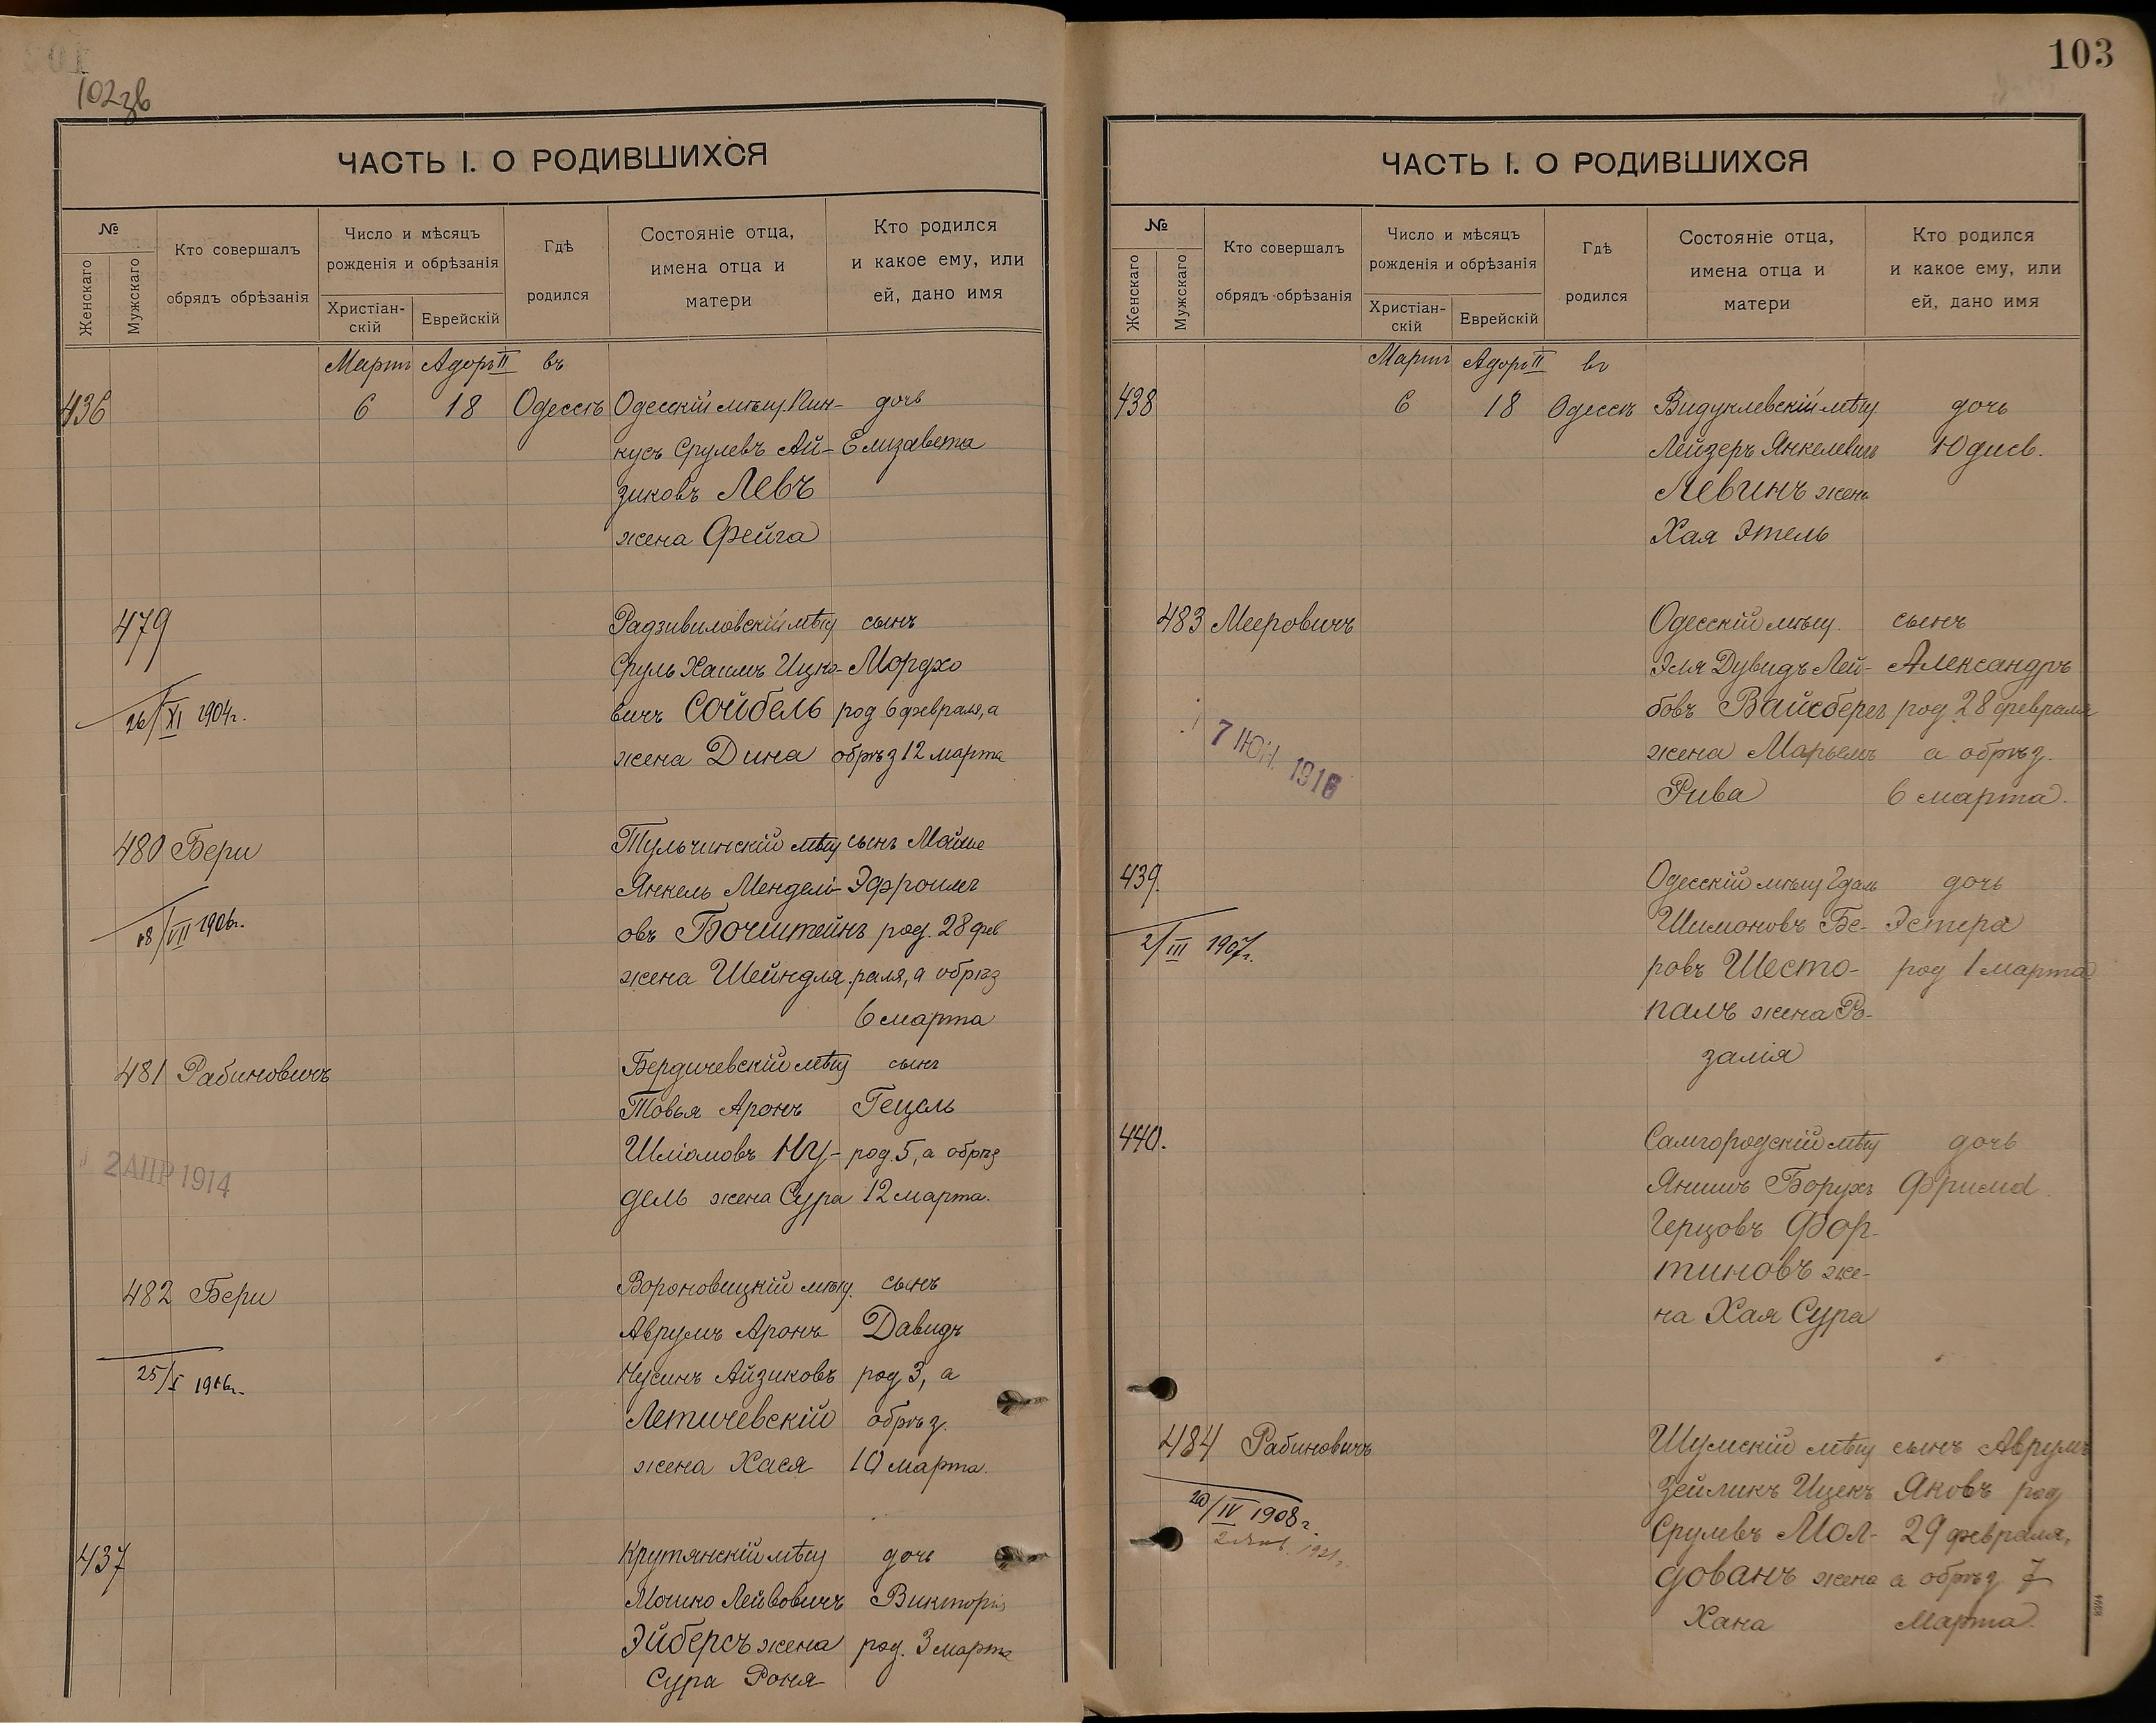 102зв
ЧАСТЬ I. О РОДИВШИХСЯ
№
Женскаго
Мужскаго
Кто совершалъ
обрядъ обрѣзанія
Число и мѣсяцъ
рожденія и обрѣзанія
Христіан-
скій
Еврейскій
Гдѣ
родился
Состояніе отца,
имена отца и
матери
Кто родился
и какое ему, или
ей, дано имя
Мартъ Адоръ II въ
436 6 18 Одессѣ Одесскій мѣщ. Пин- дочь
кусъ Срулевъ Ай- Елизавета
зиковъ Левъ
жена Фейга
479 Радзивиловскій мѣщ сынъ
Сруль Хаимъ Ицко- Мордхо
вичъ Сойбель род 6 февраля, а
26/XI 1904г.
жена Дина обрѣз 12 марта
480 Бери Тульчинскій мѣщ сынъ Мойше
Янкель Мендели- Эфроимъ
18/VII 1906г. овъ Бочштейнъ род. 28 фев
жена Шейндля раля, а обрѣз
6 марта
481 Рабиновичъ Бердичевскій мѣщ сынъ
Товья Аронъ Гецель
Шліомовъ Ну- род. 5, а обрѣз
2 АПР 1914
дель жена Сура 12 марта.
482 Бери Вороновицкій мѣщ. сынъ
Аврумъ Аронъ Давидъ
25/I 1916г. Нусинъ Айзиковъ род 3, а
Летичевскій обрѣз.
жена Хася 10 марта.
437 Крутянскій мѣщ дочь
Мошко Лейбовичъ Викторія
Эйберсъ жена род. 3 марта
Сура Роня
103
ЧАСТЬ I. О РОДИВШИХСЯ
№
Женскаго
Мужскаго
Кто совершалъ
обрядъ обрѣзанія
Число и мѣсяцъ
рожденія и обрѣзанія
Христіан-
скій
Еврейскій
Гдѣ
родился
Состояніе отца,
имена отца и
матери
Кто родился
и какое ему, или
ей, дано имя
Мартъ Адоръ II въ
438 6 18 Одессѣ Видуклевскій мѣщ. дочь
Лейзеръ Янкелевичъ Юдиѳь.
Левинъ жена
Хая Этель
483 Мееровичъ Одесскій мѣщ. сынъ
Эля Дувидъ Лей- Александръ
бовъ Вайсбергъ род 28 февраля
7 ЮН. 1916
жена Марьямъ а обрѣз.
Рива 6 марта.
439. Одесскій мѣщ Гдаль дочь
Шимоновъ Бе- Эстера
2/III 1907г.
ровъ Шесто- род 1 марта
палъ жена Ро-
залія
440. Самгородскій мѣщ дочь
Борухъ Фрима.
Герцовъ Фор-
тиновъ же-
на Хая Сура
484 Рабиновичъ Шумскій мѣщ сынъ Аврумъ
Зейликъ Ицекъ Яковъ род
20/IV 1908г.
Срулевъ Мол- 29 февраля,
дованъ жена а обрѣз 7
Хана Марта.